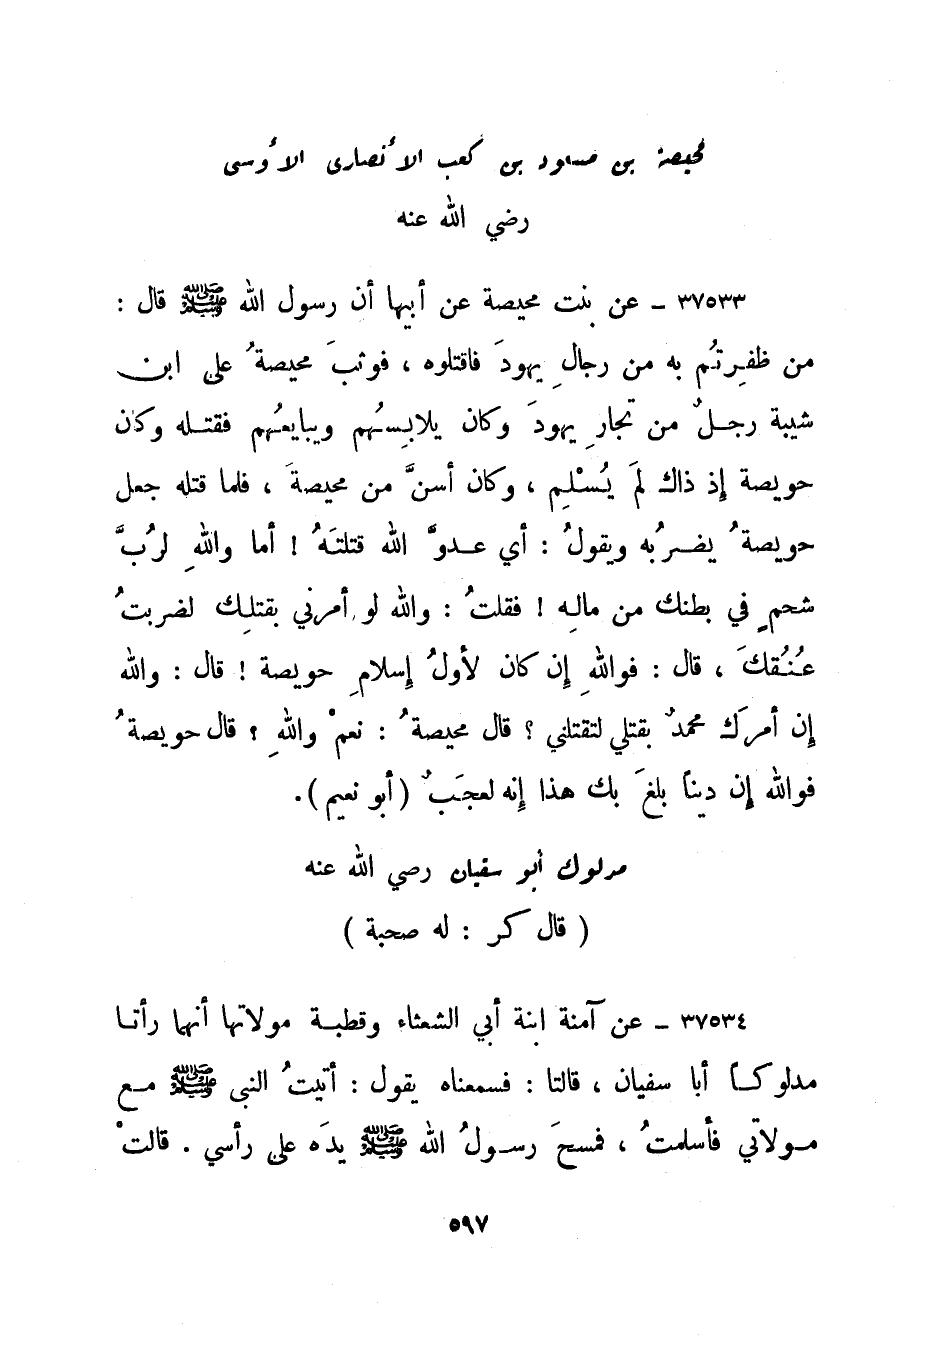 محيصة بن مسعود بن كعب الأنصارى الأوسى
رضي الله عنه
٣٧٥٣٣ ـ عن بنت محيصة عن أبيها أن رسول الله ﷺ قال :
من ظفِرتُم به من رجالِ يهودَ فاقتلوه ، فوثبَ محيصةُ على ابن
شيبة رجلٌ من تجارِ يهودَ وكان يلابِسُهم ويبايعُهم فقتله وكان
حويصة إذ ذاك لمَ يُسْلِم ، وكان أسنَّ من محيصةَ ، فلما قتله جعل
حويصةُ يضربُه ويقولُ : أي عدوَّ الله قتلتَهُ ! أما واللهِ لرُبَّ
شحمٍ في بطنك من مالِه ! فقلتُ : والله لو أمرني بقتلِك لضربتُ
عُنُقكَ ، قال : فواللهِ إن كان لأولُ إسلامِ حويصة ! قال : والله
إن أمرَك محمدٌ بقتلي لتقتلني ؟ قال محيصةُ : نعمْ واللهِ ؟ قال حويصةُ
فوالله إن ديناً بلغَ بك هذا إنه لعجَبٌ ( أبو نعيم ) .
مدلوك أبو سفيان رضي الله عنه
( قال كر : له صحبة )
٣٧٥٣٤ ـ عن آمنة ابنة أبي الشعثاء وقطبة مولاتها أنهما رأتا
مدلوكاً أبا سفيان ، قالتا : فسمعناه يقول : أتيتُ النبي ﷺ مع
مولاتي فأسلمتُ ، فمسحَ رسولُ الله ﷺ يدَه على رأسي . قالتْ
٥٩٧